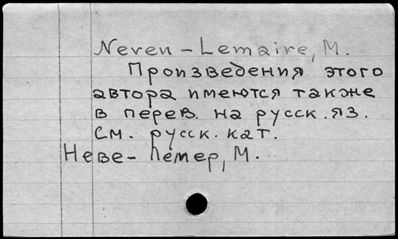 Neven-Lemaire, M.
Произведения этого
автора имеются также
в перев. на русск. яз.
См. русск. кат.
Неве-Лемер, М.